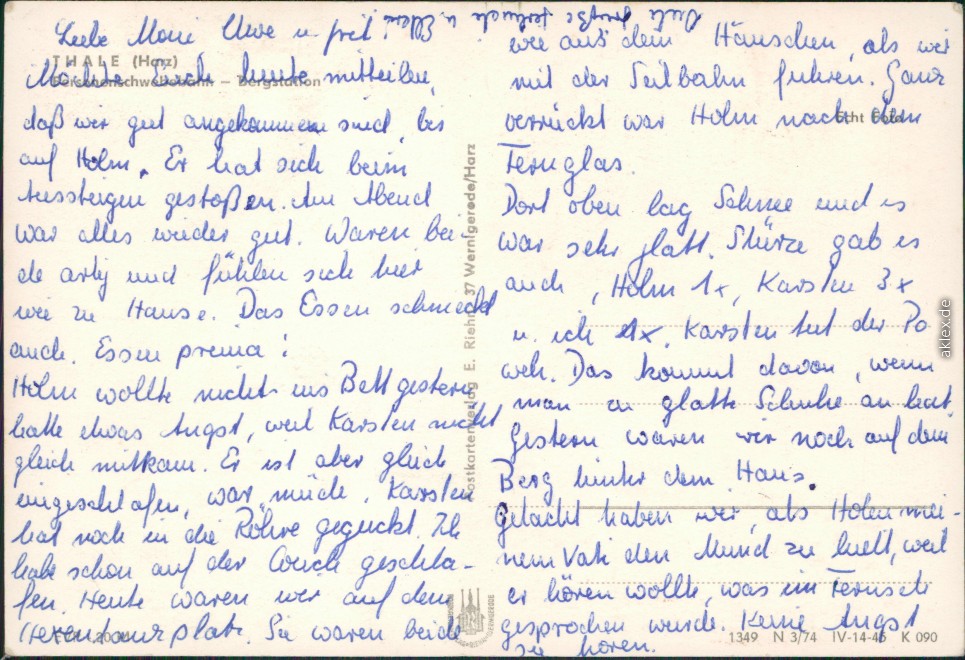 Liebe Moni Uwe u.
Möchte Euch heute mitteilen,
daß wir gut angekommen sind, bis
auf Holm. Er hat sich beim
Aussteigen gestoßen. Am Abend
war alles wieder gut. Waren bei-
de artig und fühlen sich hier
wie zu Hause. Das Essen schmeckt
auch. Essen prima!
Holm wollte nicht ins Bett gestern
hatte etwas Angst, weil Karsten nicht
gleich mitkam. Er ist aber gleich
eingeschlafen, war müde. Karsten
hat noch in die Röhre geguckt. Ich
habe schon auf der Couch geschla-
fen. Heute waren wir auf dem
Hexentanzplatz. Sie waren beide
Viele Grüße
wie aus dem Häuschen, als wir
mit der Seilbahn fuhren. Ganz
verrückt war Holm nach dem
Fernglas.
Dort oben lag Schnee und es
war sehr glatt. Stürze gab es
auch, Holm 1x, Karsten 3x
u. ich 1x. Karsten tut der Po
weh. Das kommt davon, wenn
man zu glatte Schuhe an hat.
Gestern waren wir noch auf dem
Berg hinter dem Haus.
Gelacht haben wir, als Holm mei-
nem Vati den Mund zu hielt, weil
er hören wollte, was im Fernseh
gesprochen wurde. Keine Angst
sie hören.
THALE (Harz)
Personenschwebebahn – Bergstation
Echt Foto
Postkartenverlag E. Riehn, 37 Wernigerode/Harz
1349 N 3/74 IV-14-45 K 090
aklex.de